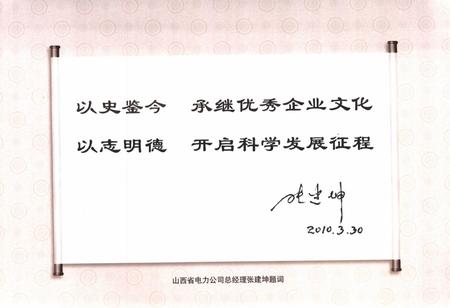 以史鉴今 承继优秀企业文化
以志明德 开启科学发展征程
张建坤
2010.3.30
山西省电力公司总经理张建坤题词